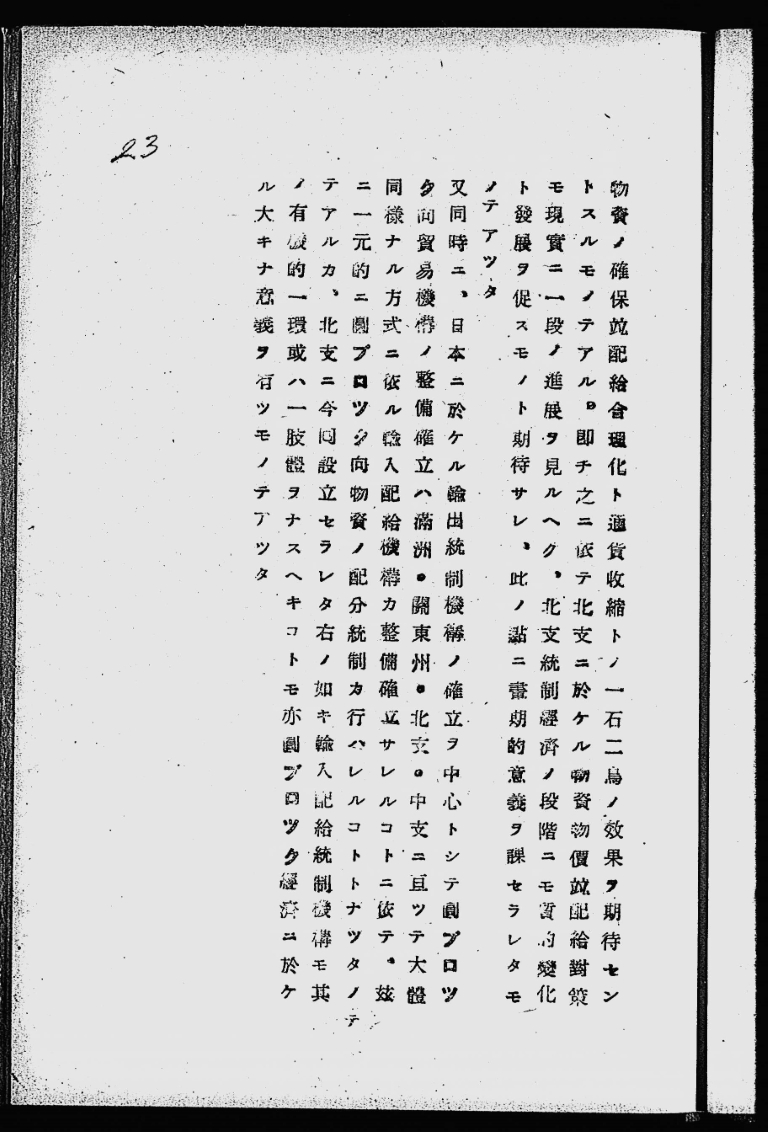 23
物資ノ確保竝配給合理化ト通貨收縮トノ一石二鳥ノ效果ヲ期待セン
トスルモノテアル。即チ之ニ依テ北支ニ於ケル物資物價竝配給對策
モ現實ニ一段ノ進展ヲ見ルヘク、北支統制經濟ノ段階ニモ質的變化
ト發展ヲ促スモノト期待サレ、此ノ點ニ畫期的意義ヲ課セラレタモ
ノテアツタ
又同時ニ、日本ニ於ケル輸出統制機構ノ確立ヲ中心トシテ圓ブロツ
ク向貿易機構ノ整備確立ハ滿洲。關東州。北支。中支ニ亘ツテ大體
同樣ナル方式ニ依ル輸入配給機構カ整備確立サレルコトニ依テ、茲
ニ一元的ニ圓ブロツク向物資ノ配分統制カ行ハレルコトトナツタノテ
テアルカ、北支ニ今囘設立セラレタ右ノ如キ輸入配給統制機構モ其
ノ有機的一環或ハ一肢體ヲナスヘキコトモ亦圓ブロツク經濟ニ於ケ
ル大キナ意義ヲ有ツモノテアツタ